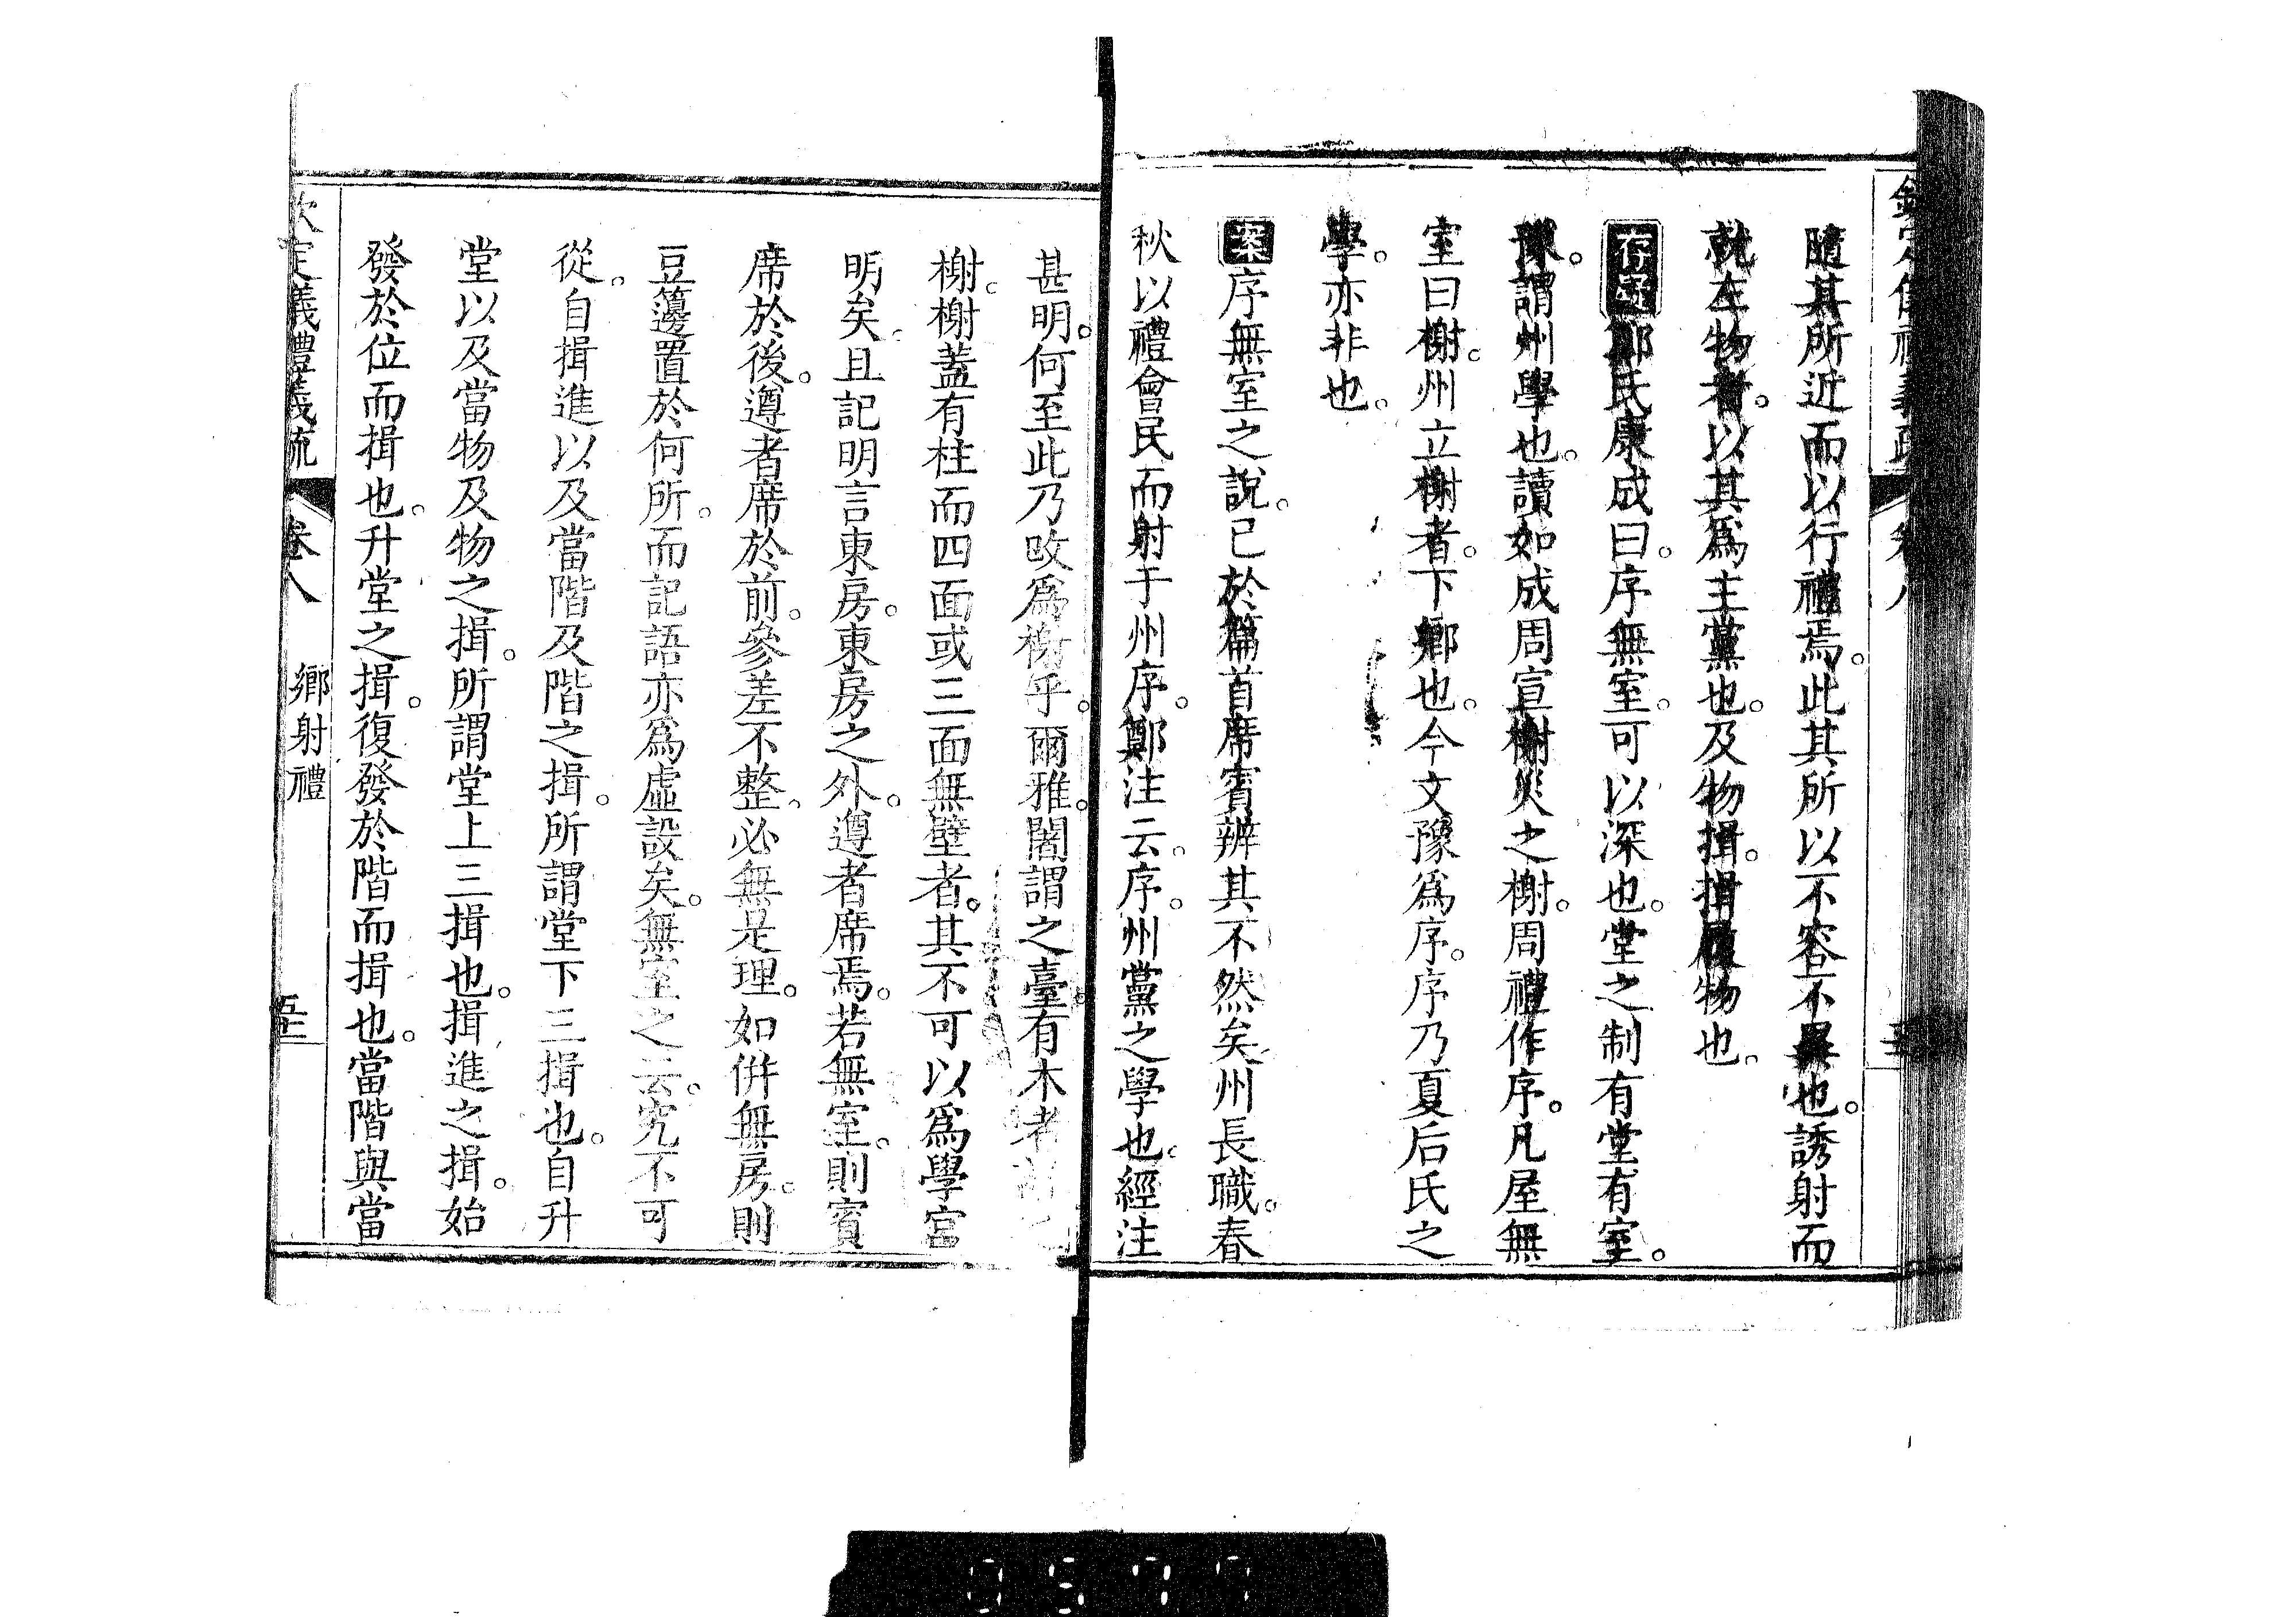 隨其所近而以行禮焉。此其所以不容不異也。誘射而
就左物者。以其爲主黨也。及物揖。揖履物也。
存疑鄭氏康成曰。序無室。可以深也。堂之制有堂有室。
豫。謂州學也。讀如成周宣榭災之榭。周禮作序。凡屋無
室曰榭。州立榭者。下鄉也。今文豫爲序。序乃夏后氏之
學。亦非也。
案序無室之說。已於篇首席賓辨其不然矣。州長職。春
秋以禮會民而射于州序。鄭注云。序。州黨之學也。經注
甚明。何至此乃改爲榭乎。爾雅。闍謂之臺。有木者
榭。榭蓋有柱而四面或三面無壁者。其不可以爲學宮
明矣。且記明言東房。東房之外。遵者席焉。若無室。則賓
席於後。遵者席於前。參差不整。必無是理。如併無房。則
豆籩置於何所。而記語亦爲虛設矣。無室之云。究不可
從。自揖進以及當階及階之揖。所謂堂下三揖也。自升
堂以及當物及物之揖。所謂堂上三揖也。揖進之揖。始
發於位而揖也。升堂之揖。復發於階而揖也。當階與當
欽定儀禮義疏 卷八 鄉射禮